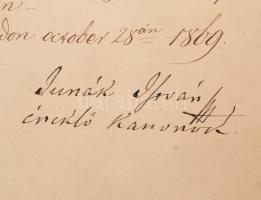 don october 28án 1869.
Junák István
éneklő kanonok